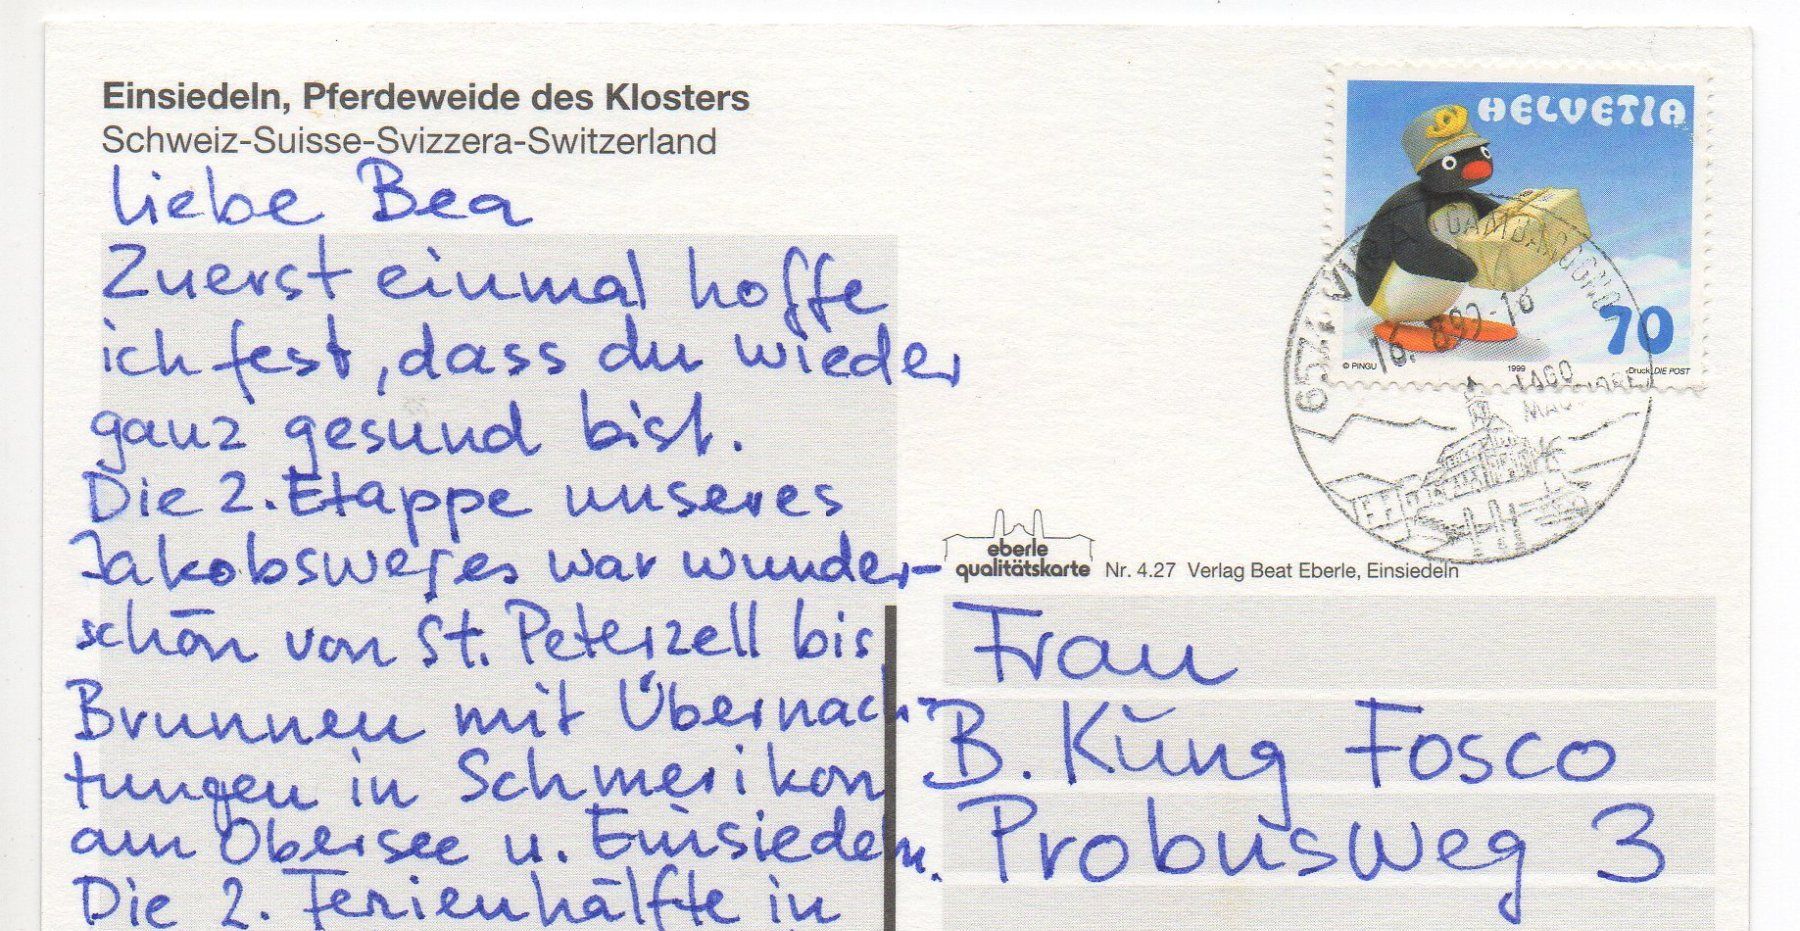 Einsiedeln, Pferdeweide des Klosters
Schweiz-Suisse-Svizzera-Switzerland
Liebe Bea
Zuerst einmal hoffe
ich fest, dass du wieder
ganz gesund bist.
Die 2. Etappe unseres
Jakobsweges war wunder-
schön von St. Peterzell bis
Brunnen mit Übernach-
tungen in Schmerikon
am Obersee u. Einsiedeln.
Die 2. Ferienhälfte in
HELVETIA
70
© PINGU
1999
Druck: DIE POST
6574 VIRA (GAMBAROGNO)
16.-8.99-18
LAGO
eberle
qualitätskarte
Nr. 4.27 Verlag Beat Eberle, Einsiedeln
Frau
B. Küng Fosco
Probusweg 3